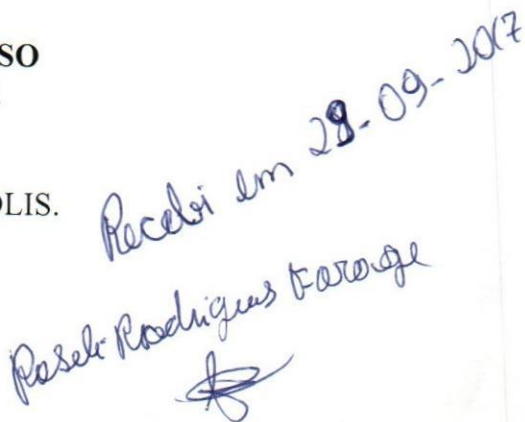 SO
OLIS.
Recebi em 28-09-2017
Roseli Rodrigues Farage